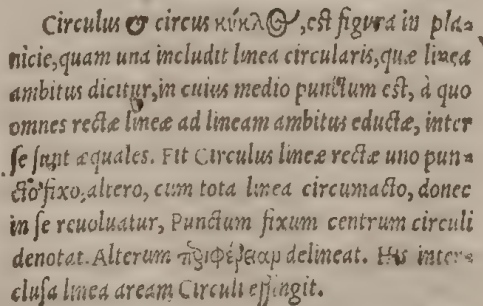 Circulus & circus κύκλος, est figura in pla-
nicie, quam una includit linea circularis, quæ linea
ambitus dicitur, in cuius medio punctum est, à quo
omnes rectæ lineæ ad lineam ambitus eductæ, inter
se sunt æquales. Fit Circulus lineæ rectæ uno pun-
cto fixo, altero, cum tota linea circumacto, donec
in se reuoluatur, Punctum fixum centrum circuli
denotat. Alterum περιφέρειαμ delineat. His inter-
clusa linea aream Circuli effingit.